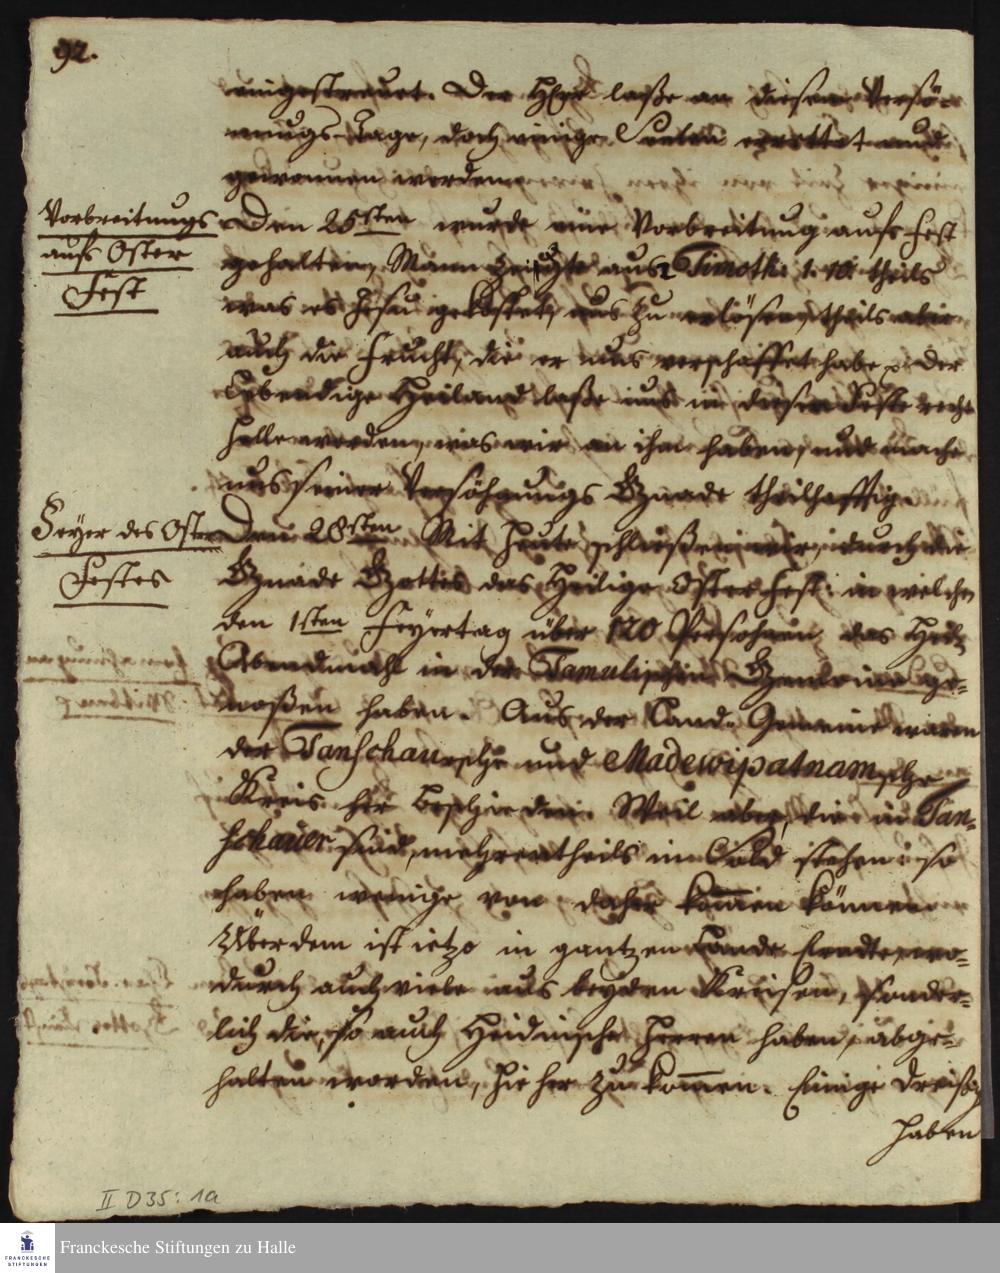 92.
eingestreuet. Der HErr laße an diesem Versöh-
nungs-Tage, doch einige Seelen errettet und
gewonnen werden.
Vorbereitungs
aufs Oster
Fest
Den 25sten wurde eine Vorbereitung aufs Fest
gehalten, Mann zeigte aus 2 Timoth: 1. 10. theils
was es Jesu gekostet, uns zu erlösen, theils aber
auch die Frucht, die er uns verschaffet habe. Der
Lebendige Heiland laße uns in diesem Feste recht
helle werden, was wir an ihm haben, und mache
uns seiner Versöhnungs Gnade theilhafftig.
Feyer des Oster
Festes
Den 28sten Mit heute schließen wir, durch die
Gnade Gottes das Heilige Oster Fest: in welchen
den 1sten Feyertag über 120 Persohnen das Heil.
Abendmahl in der Tamulischen Gemeine ge-
noßen haben. Aus der Land-Gemeine waren
der Tanschaursche und Madewipatnamsche
Kreis her beschieden. Weil aber, die in Tan-
schauer sind, mehrentheils im Sold stehen: so
haben wenige von daher kommen können
Überdem ist ietzo in gantzen Lande Erndte, wo-
durch auch viele aus beyden Kreisen, sonder-
lich die, so auch Heidnische Herren haben, abge-
halten worden, hieher zu kommen. Einige Dreißig
haben
II D35: 1a
Franckesche Stiftungen zu Halle
FRANCKESCHE
STIFTUNGEN